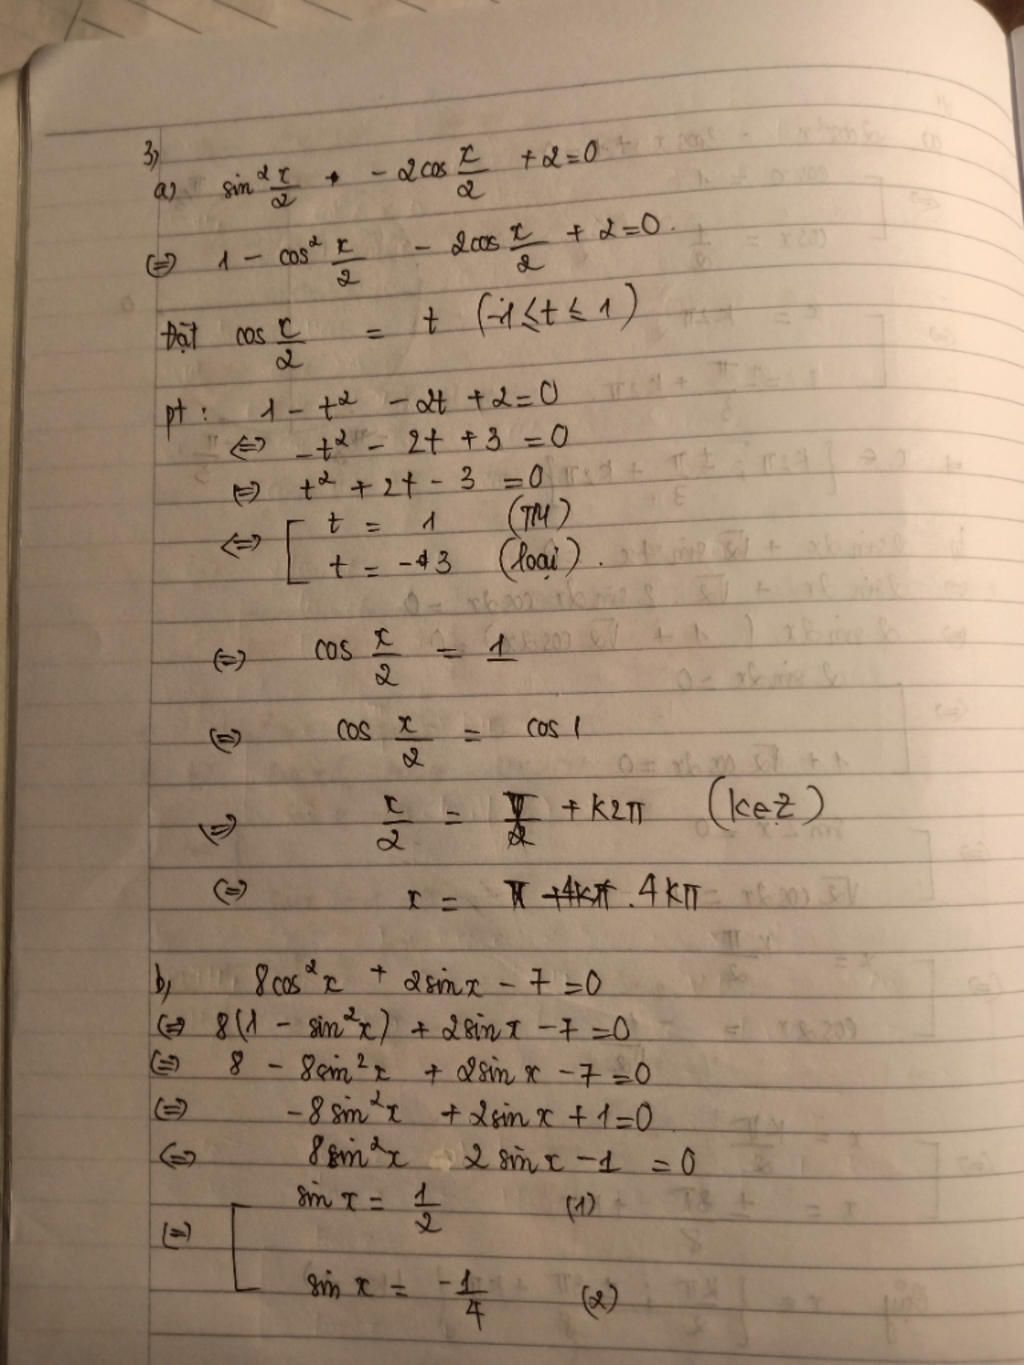 3,
a) sin² x/2 - 2cos x/2 + 2 = 0
⇔ 1 - cos² x/2 - 2cos x/2 + 2 = 0.
Đặt cos x/2 = t (-1 ≤ t ≤ 1)
pt: 1 - t² - 2t + 2 = 0
⇔ -t² - 2t + 3 = 0
⇔ t² + 2t - 3 = 0
⇔ [ t = 1 (TM)
t = -3 (loại).
⇔ cos x/2 = 1
⇔ cos x/2 = cos 1
⇔ x/2 = π/2 + k2π (k∈Z)
⇔ x = π + 4kπ . 4kπ
b, 8cos²x + 2sinx - 7 = 0
⇔ 8(1 - sin²x) + 2sinx - 7 = 0
⇔ 8 - 8sin²x + 2sinx - 7 = 0
⇔ -8sin²x + 2sinx + 1 = 0
⇔ 8sin²x 2sinx - 1 = 0
⇔ [ sinx = 1/2 (1)
sinx = -1/4 (2)